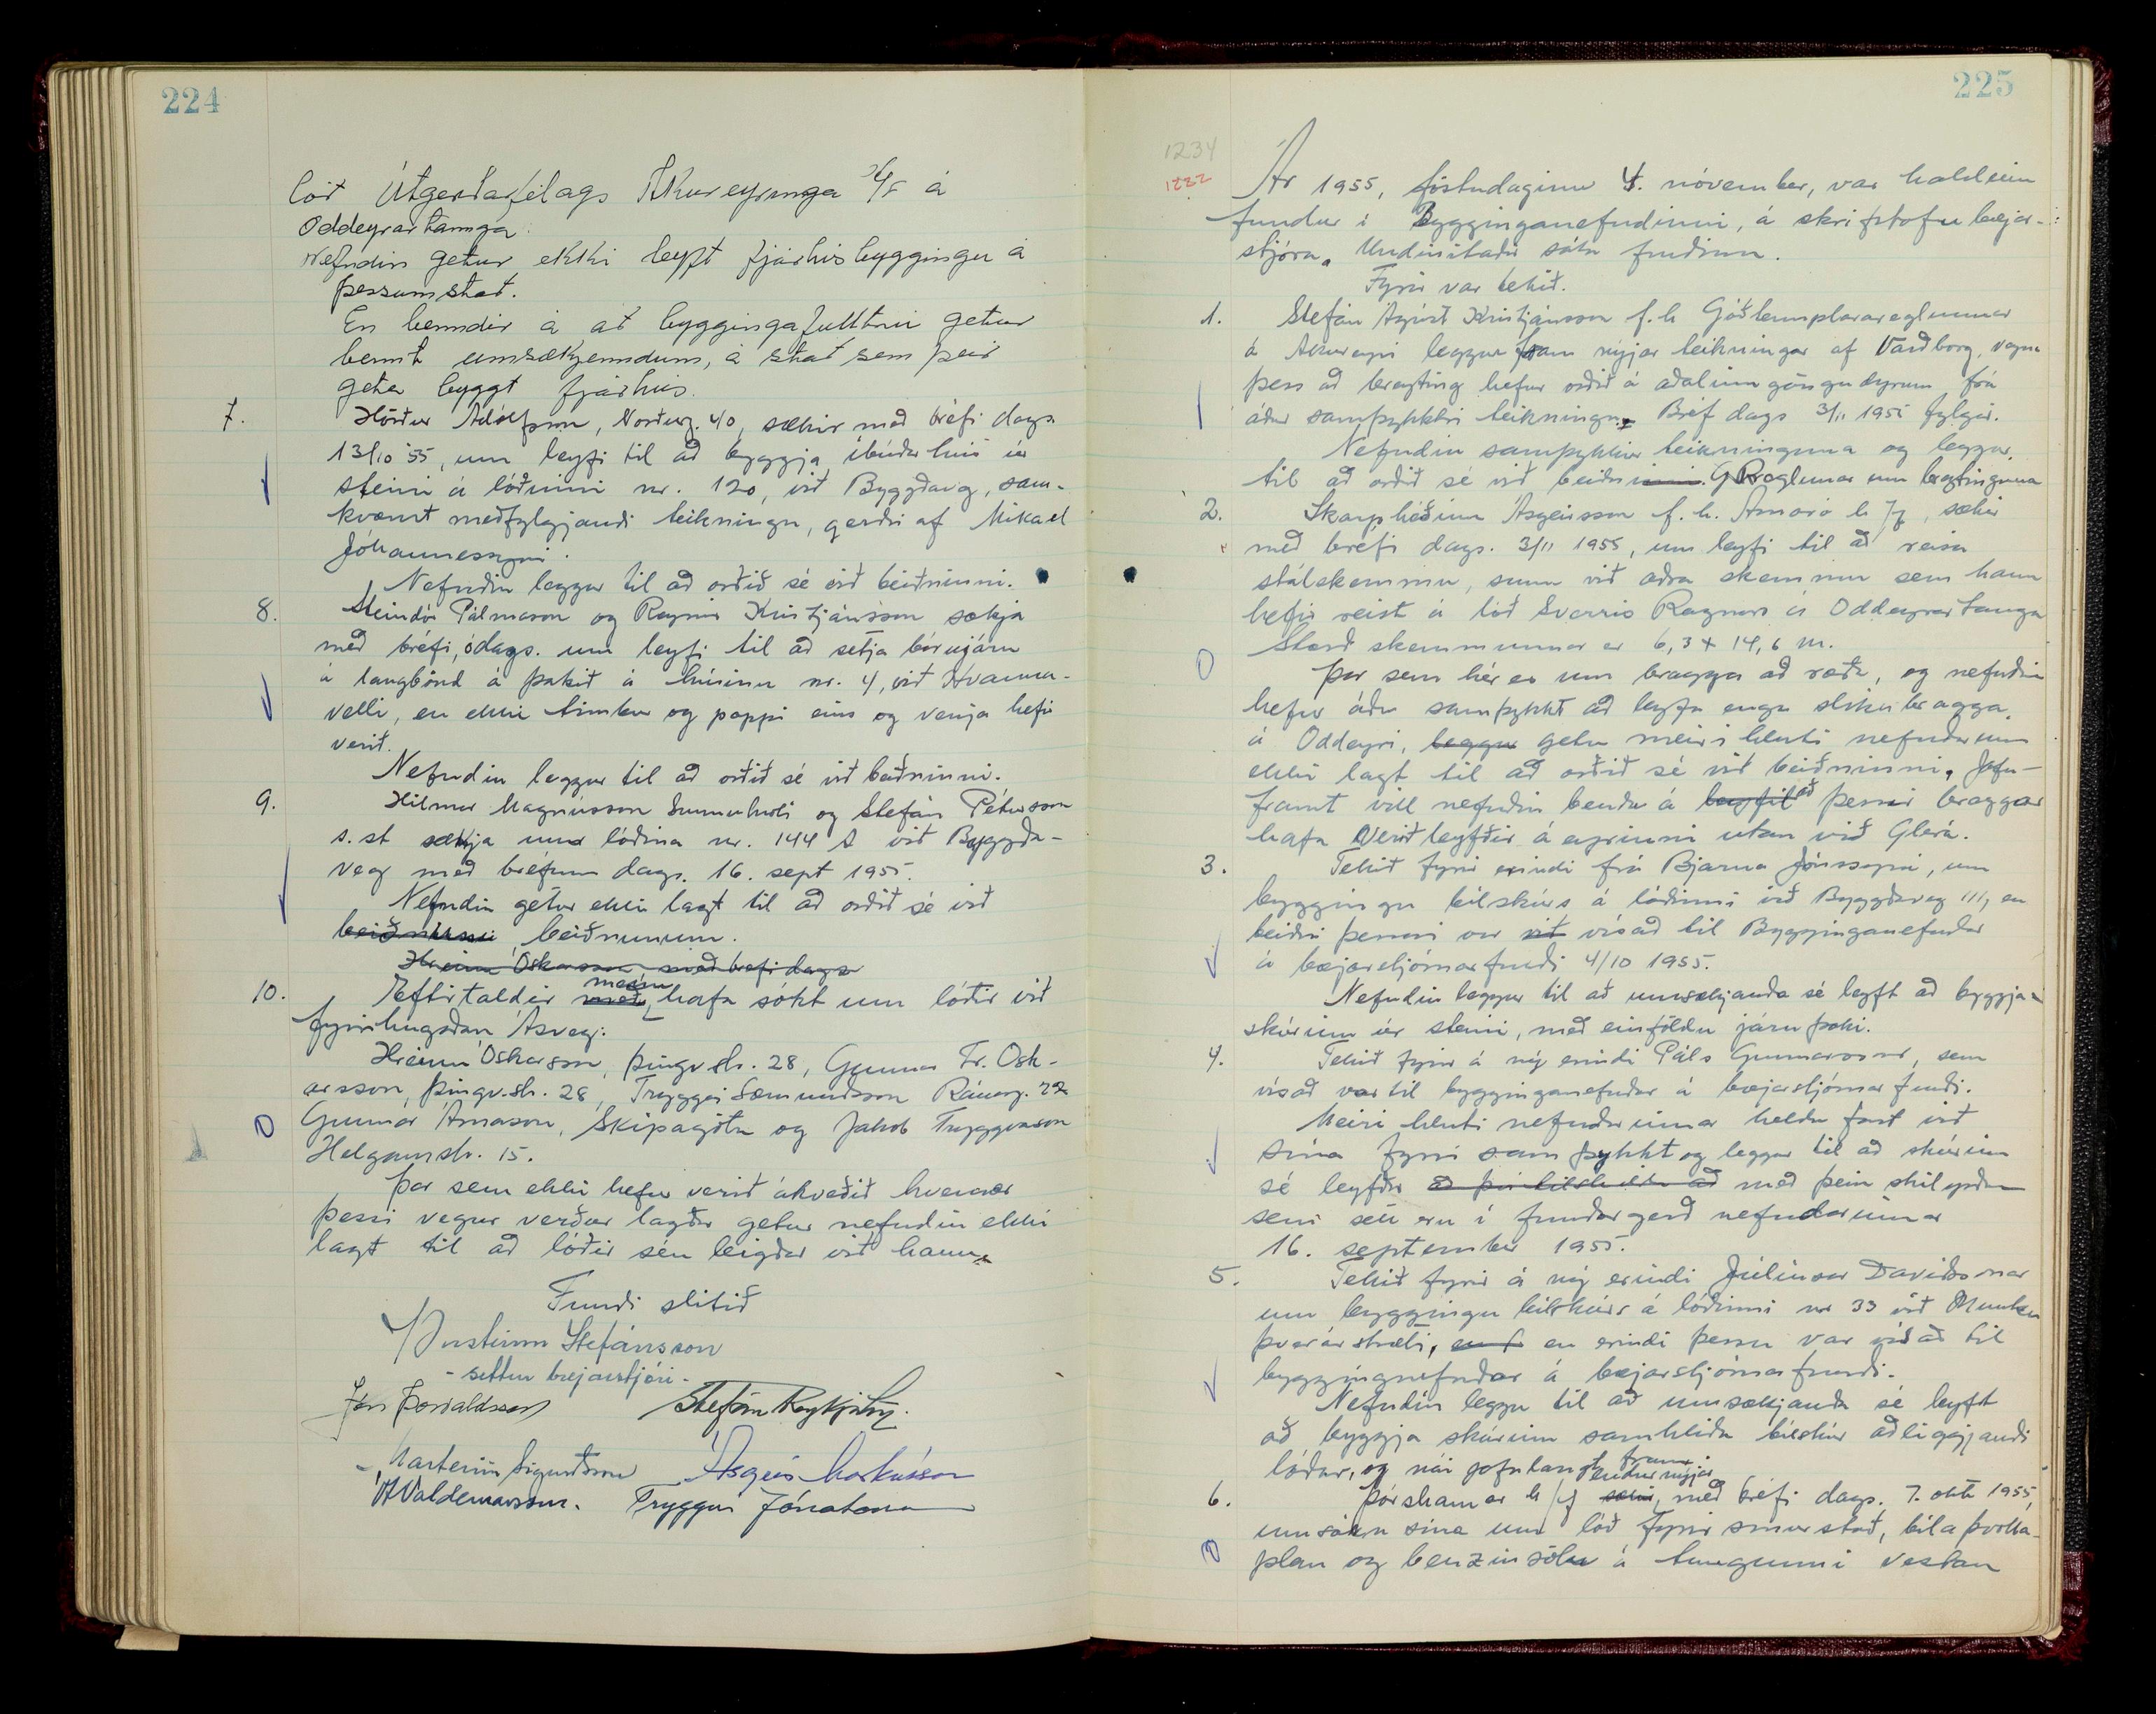 224
lóð Útgerðarfélags Akureyringa H/F á
Oddeyrartanga.
Nefndin getur ekki leyft fjárhúsbyggingu á
þessum stað.
En benndir á að byggingafulltrúi getur
bennt umsækjenndum, á stað sem þeir
geta byggt fjárhús.
7. Hörður Adólfsson, Norðurg. 40, sækir með bréfi dags.
13/10 '55, um leyfi til að byggja íbúðarhús úr
steini á lóðinni nr. 120, við Byggðaveg, sam-
kvæmt meðfylgjandi teikningu, gerðri af Mikael
Jóhannessyni.
Nefndin leggur til að orðið sé við beiðninni.
8. Steindór Pálmason og Reynir Kristjánsson sækja
með bréfi, ódags. um leyfi til að setja bárujárn
á langbönd á þakið á húsinu nr. 4, við Hvanna-
velli, en ekki timbur og pappi eins og venja hefir
verið.
Nefndin leggur til að orðið sé við beiðninni.
9. Hilmar Magnússon Sunnuhvoli og Stefán Pétursson
s.st sækja um lóðina nr. 144 A við Byggða-
veg með bréfum dags. 16. sept 1955.
Nefndin getur ekki lagt til að orðið sé við
beiðninni beiðnunum.
Hreinn Óskarsson, með bréfi dags
10. Eftirtaldir með menn hafa sótt um lóðir við
fyrirhugaðan Ásveg:
Hreinn Óskarsson, Þingv.str. 28, Gunnar Fr. Ósk-
arsson, Þingv.str. 28, Tryggvi Sæmundsson Ránarg. 22
Gunnar Árnason, Skipagötu og Jakob Tryggvason
Helgamstr. 15.
Þar sem ekki hefur verið ákveðið hvenær
þessi vegur verður lagður getur nefndin ekki
lagt til að lóðir séu leigðar við hann.
Fundi slitið
Þorsteinn Stefánsson
- settur bæjarstjóri -
Jón Þorvaldsson Stefán Reykjalín.
Marteinn Sigurðsson Ásgeir Markússon
Valdemarsson. Tryggvi Jónatansson
225
1234
1222
Ár 1955, föstudaginn 4. nóvember, var haldinn
fundur í Bygginganefndinni, á skrifstofu bæjar-
stjóra. Undirritaðir sátu fundinn.
Fyrir var tekið.
1. Stefán Ágúst Kristjánsson f.h Góðtemplarareglunnar
á Akureyri leggur fram nýjar teikningar af Varðborg, vegna
þess að breyting hefur orðið á aðalinngöngudyrum frá
áður samþykktri teikningu. Bréf dags 3/11 1955 fylgir.
Nefndin samþykkir teikninguna og leggur
til að orðið sé við beiðni G Reglunnar um breytinguna
2. Skarphéðinn Ásgeirsson f.h. Amaro h/f, sækir
með bréfi dags. 3/11 1955, um leyfi til að reisa
stálskemmu, sunnan við aðra skemmu sem hann
hefir reist á lóð Sverris Ragnars á Oddeyrartanga
Stærð skemmunnar er 6,3 x 14,6 m.
Þar sem hér er um bragga að ræða, og nefndin
hefur áður samþykkt að leyfa enga slíka bragga,
á Oddeyri, leggur getur meiri hluti nefndarinnar
ekki lagt til að orðið sé við beiðninni. Jafn-
framt vill nefndin benda á að þessir braggar
hafa verið leyfðir á eyrinni utan við Glerá.
3. Tekið fyrir erindi frá Bjarna Jónssyni, um
byggingu bílskúrs á lóðinni við Byggðaveg 111, en
beiðni þessari var við vísað til Bygginganefndar
á bæjarstjórnarfundi 4/10 1955.
Nefndin leggur til að umsækjanda sé leyft að byggja
skúrinn úr steini, með einföldu járnþaki.
4. Tekið fyrir á ný erindi Páls Gunnarssonar, sem
vísað var til bygginganefndar á bæjarstjórnarfundi.
Meiri hluti nefndarinnar heldur fast við
sína fyrri samþykkt og leggur til að skúrinn
sé leyfður með þeim skilyrðum
sem sett eru í fundargerð nefndarinnar
16. september 1955.
5. Tekið fyrir á ný erindi Júlíusar Davíðssonar
um byggingu bílskúrs á lóðinni nr 33 við Munka
þverárstræti, en erindi þessu var vísað til
byggingnefndar á bæjarstjórnarfundi.
Nefndin leggur til að umsækjanda sé leyft
að byggja skúrinn samhliða bílskúr aðliggjandi
lóðar, og nái jafnlangt fram.
6. Þórshamar h/f sækir endurnýjar með bréfi dags. 7. okt 1955,
umsókn sína um lóð fyrir smurstöð, bílaþvotta-
plan og benzínsölu á tungunni vestan